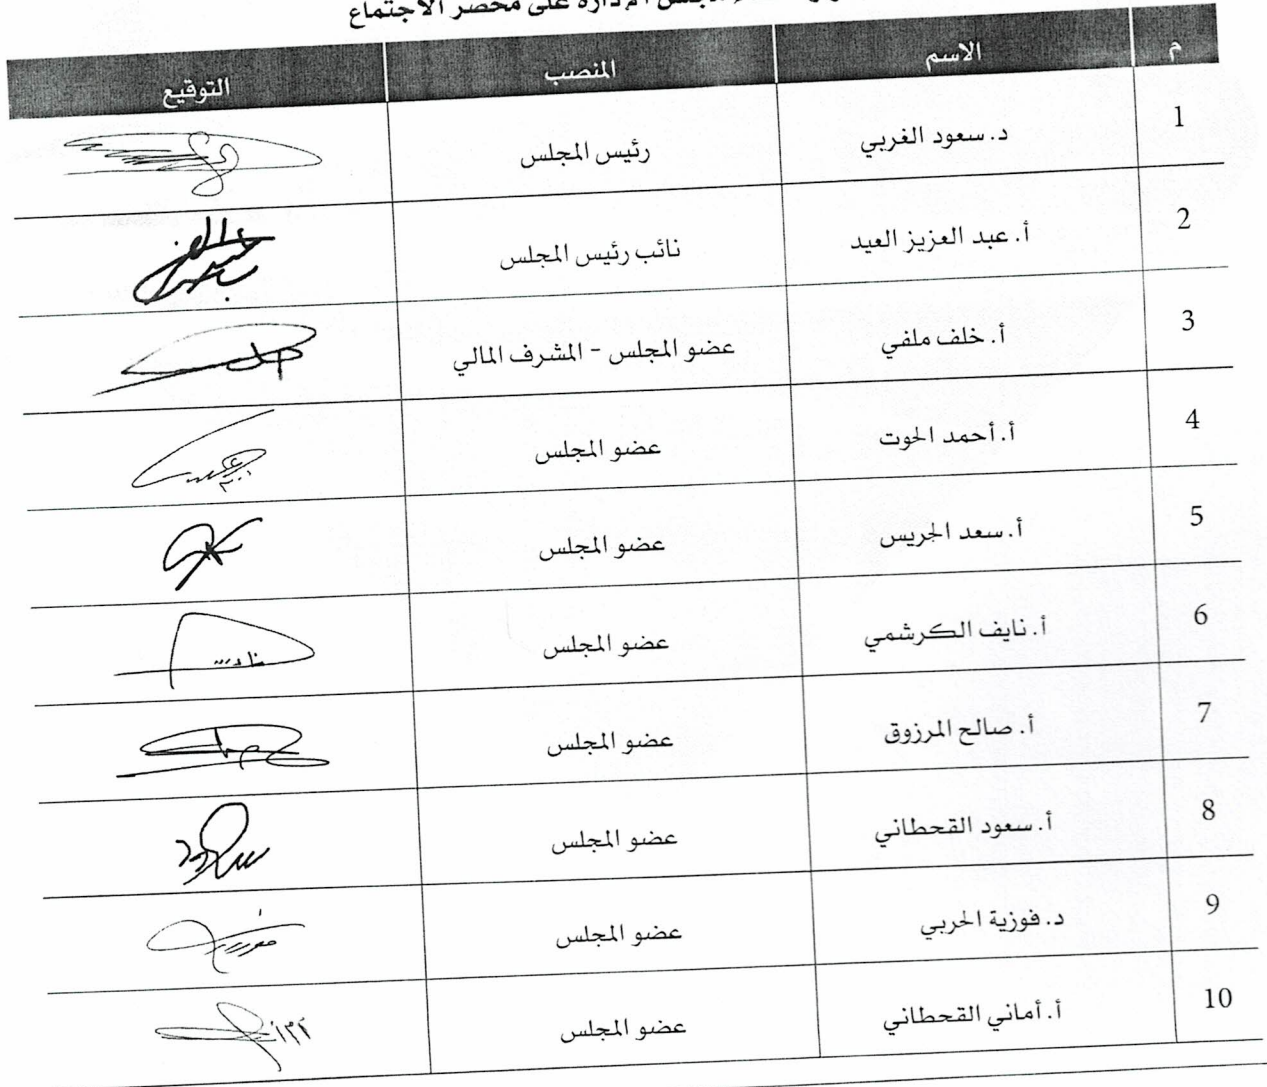 مجلس الإدارة على محضر الاجتماع
م الاسم المنصب التوقيع
1 د. سعود الغربي رئيس المجلس
2 أ. عبد العزيز العيد نائب رئيس المجلس
3 أ. خلف ملفي عضو المجلس - المشرف المالي
4 أ. أحمد الحوت عضو المجلس
5 أ. سعد الجريس عضو المجلس
6 أ. نايف الكرشمي عضو المجلس
7 أ. صالح المرزوق عضو المجلس
8 أ. سعود القحطاني عضو المجلس
9 د. فوزية الحربي عضو المجلس
10 أ. أماني القحطاني عضو المجلس